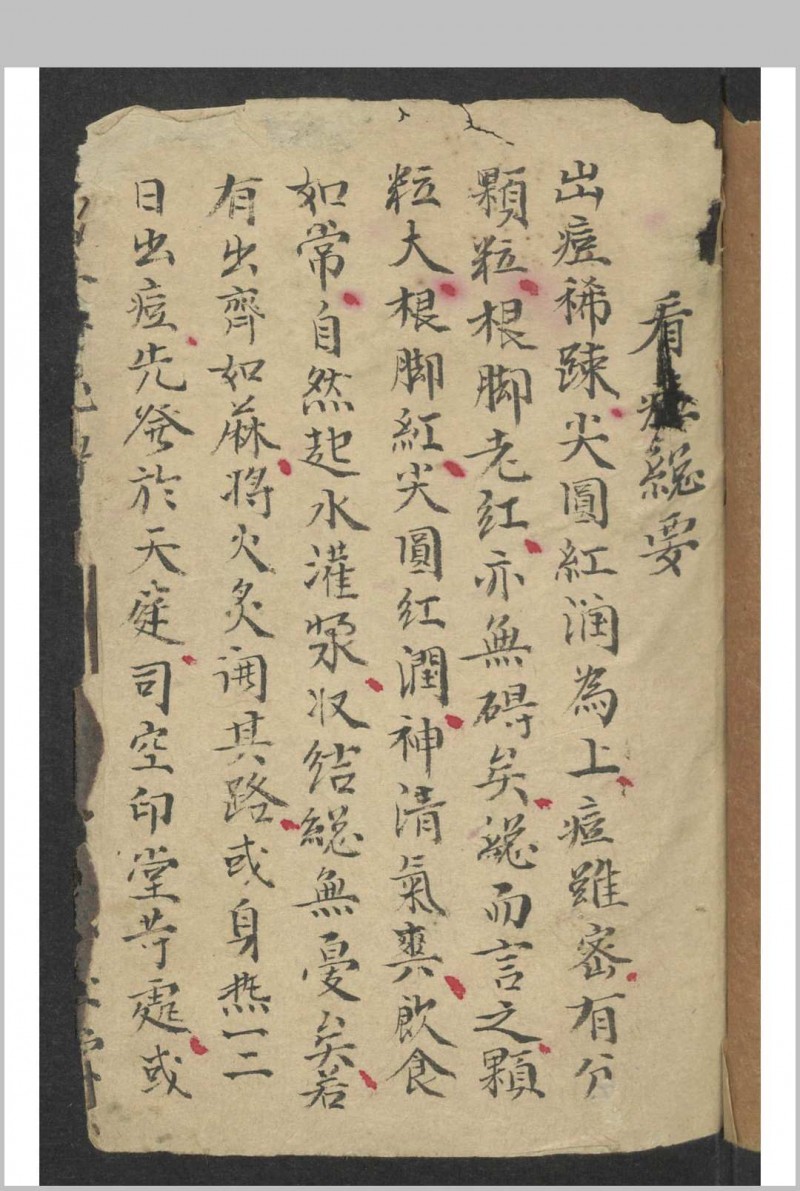 看痘緫要
出痘稀踈尖圓紅润為上痘雖宻有分
顆粒根脚老红亦無碍矣緫而言之顆
粒大根脚紅尖圓红潤神清氣爽飲食
如常自然起水灌漿収结緫無憂矣若
有出齊如蔴将火炙開其路或身热一二
日出痘先發於天庭司空印堂等處或